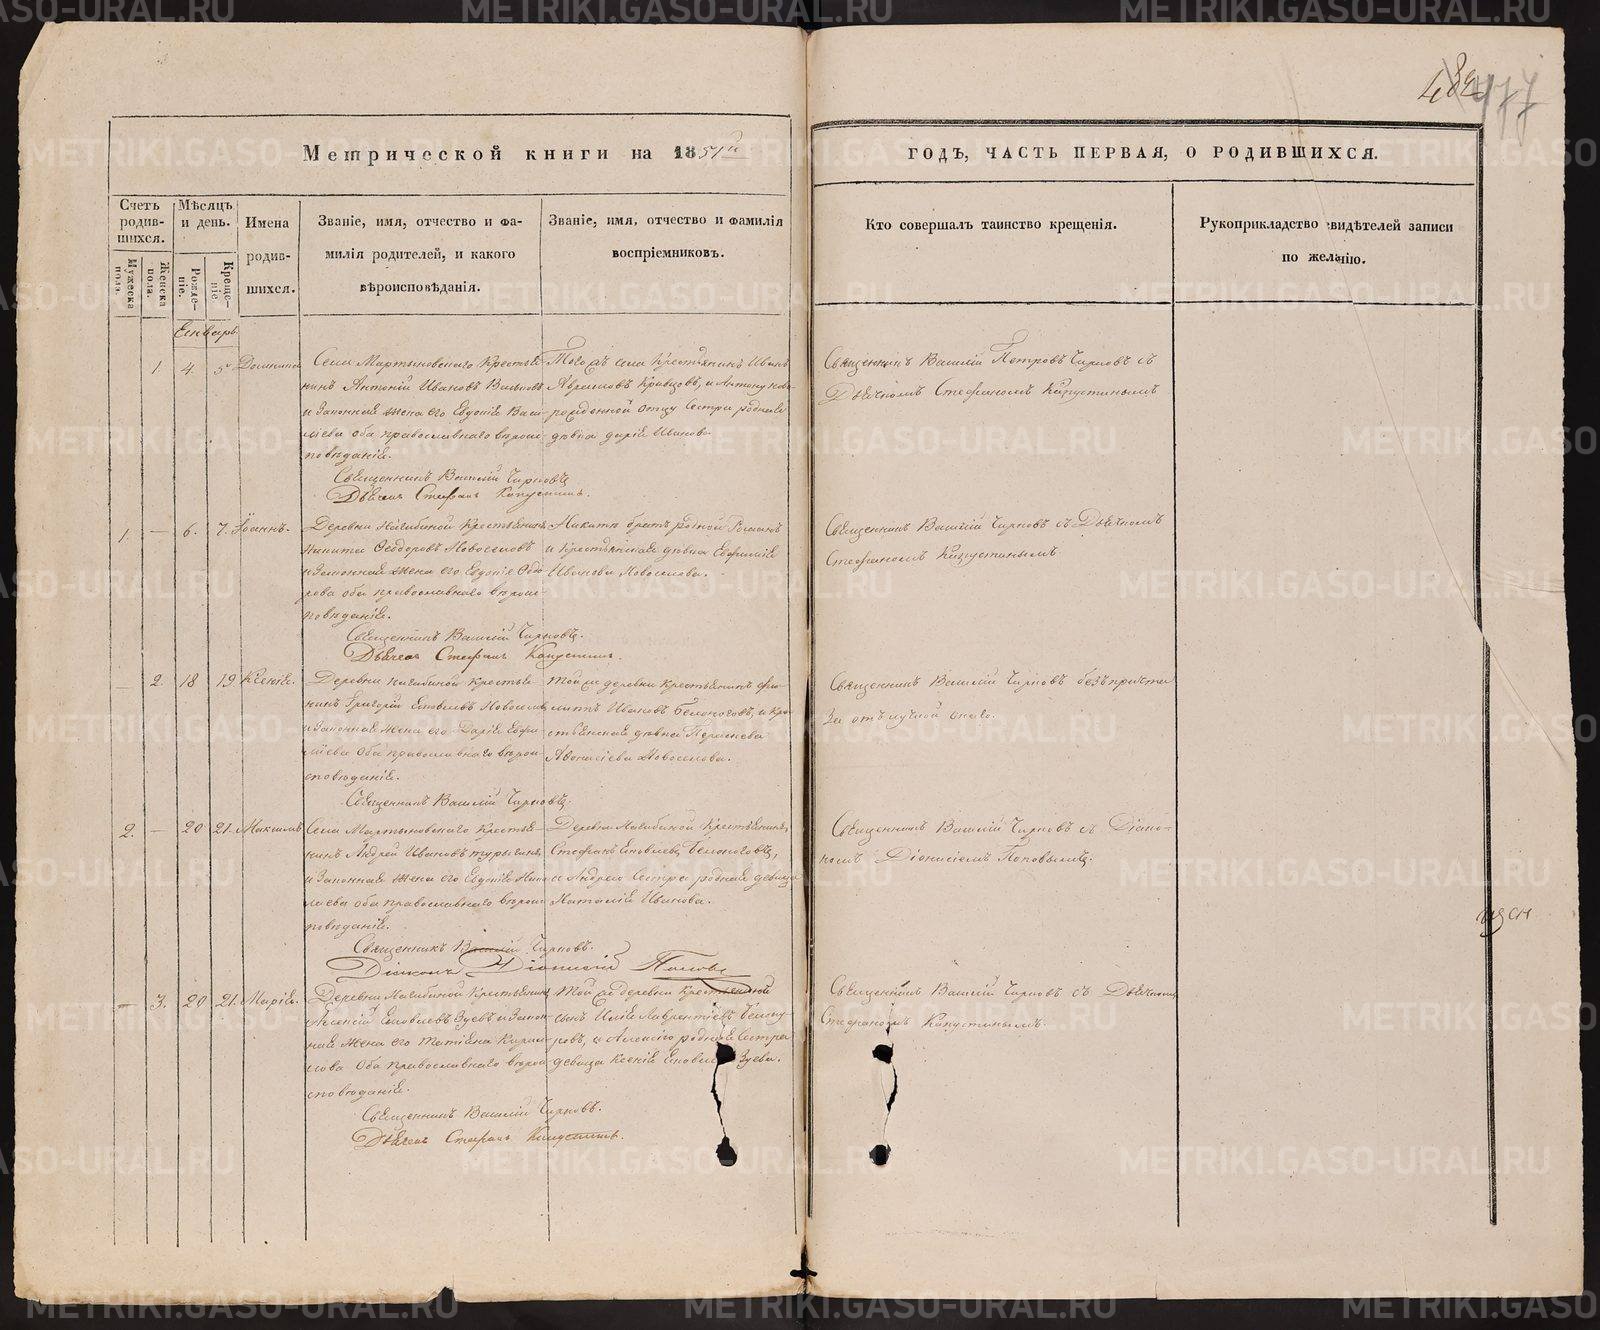 METRIKI.GASO-URAL.RU
477
Метрической книги на 1851й
ГОДЪ, ЧАСТЬ ПЕРВАЯ, О РОДИВШИХСЯ.
Счетъ родившихся.
Мужеска пола.
Женска пола.
Мѣсяцъ и день.
Рожденіе.
Крещеніе.
Имена родившихся.
Званіе, имя, отчество и фамилія родителей, и какого вѣроисповѣданія.
Званіе, имя, отчество и фамилія воспріемниковъ.
Кто совершалъ таинство крещенія.
Рукоприкладство свидѣтелей записи по желанію.
Генварь
1 4. 5 Домника
Села Мартыновскаго Крестья-
нинъ Антоній Ивановъ
и Законная жена его Евдокія Васи-
ліева оба православнаго вѣроис-
повѣданія.
Священникъ Василій Чирковъ
Дьячекъ Стефанъ Капустинъ.
Того жъ села Крестьянинъ Иванъ
Кривцовъ, и Антону ново-
рожденной отцу Сестра родная
дѣвка Дарія Иванова
Священникъ Василій Петровъ Чирковъ съ
Дьячкомъ Стефаномъ Капустинымъ
1. — 6. 7. Іоаннъ.
Деревни Нагибиной Крестьянинъ
Никита Ѳеодоровъ Новоселовъ
и Законная жена его Евдокія Ѳедо-
рова оба православнаго вѣроис-
повѣданія.
Священникъ Василій Чирковъ.
Дьячекъ Стефанъ Капустинъ.
Никитѣ братъ родной Романъ
и Крестьянская дѣвка Евфимія
Иванова Новоселова.
Священникъ Василій Чирковъ съ Дьячкомъ
Стефаномъ Капустинымъ
— 2 18 19 Ксенія.
Деревни Нагибиной Крестья-
нинъ Григорій Яковлевъ Новоселовъ
и Законная жена его Дарія
Оба православнаго вѣрои-
споведанія.
Священникъ Василій Чирковъ.
Той же деревни Крестьянинъ Фи-
липъ Ивановъ Белоноговъ, и Кре-
стьянская дѣвка
Афонасіева Новоселова.
Священникъ Василій Чирковъ безъ причта
За отлучкой онаго.
2. — 20 21. Максимъ
Села Мартыновскаго Крестья-
нинъ Андрей Ивановъ
и Законная жена его Евдокія Нико-
лаева оба православнаго вѣроис-
повѣданія.
Священникъ Василій Чирковъ.
Діаконъ Діонисій Поповъ
Деревни Нагибиной Крестьянинъ,
Стефанъ Яковлевъ Белоноговъ,
и Андрею Сестра родная девица
Наталія Иванова.
Священникъ Василій Чирковъ съ Діако-
номъ Діонисіемъ Поповымъ.
— 3. 20 21. Марія.
Деревни Нагибиной Крестьянинъ
Алексій Яковлевъ Зуевъ и Закон-
ная жена его Татіана Кирил-
лова Оба православнаго вѣрои-
споведанія.
Священникъ Василій Чирковъ.
Дьячекъ Стефанъ Капустинъ.
Той же деревни Крестьянской
сынъ Илія Лаврентіевъ Белоно-
говъ, и Алексію родная Сестра
девица Ксенія Яковлева Зуева.
Священникъ Василій Чирковъ съ Дьячкомъ
Стефаномъ Капустинымъ.